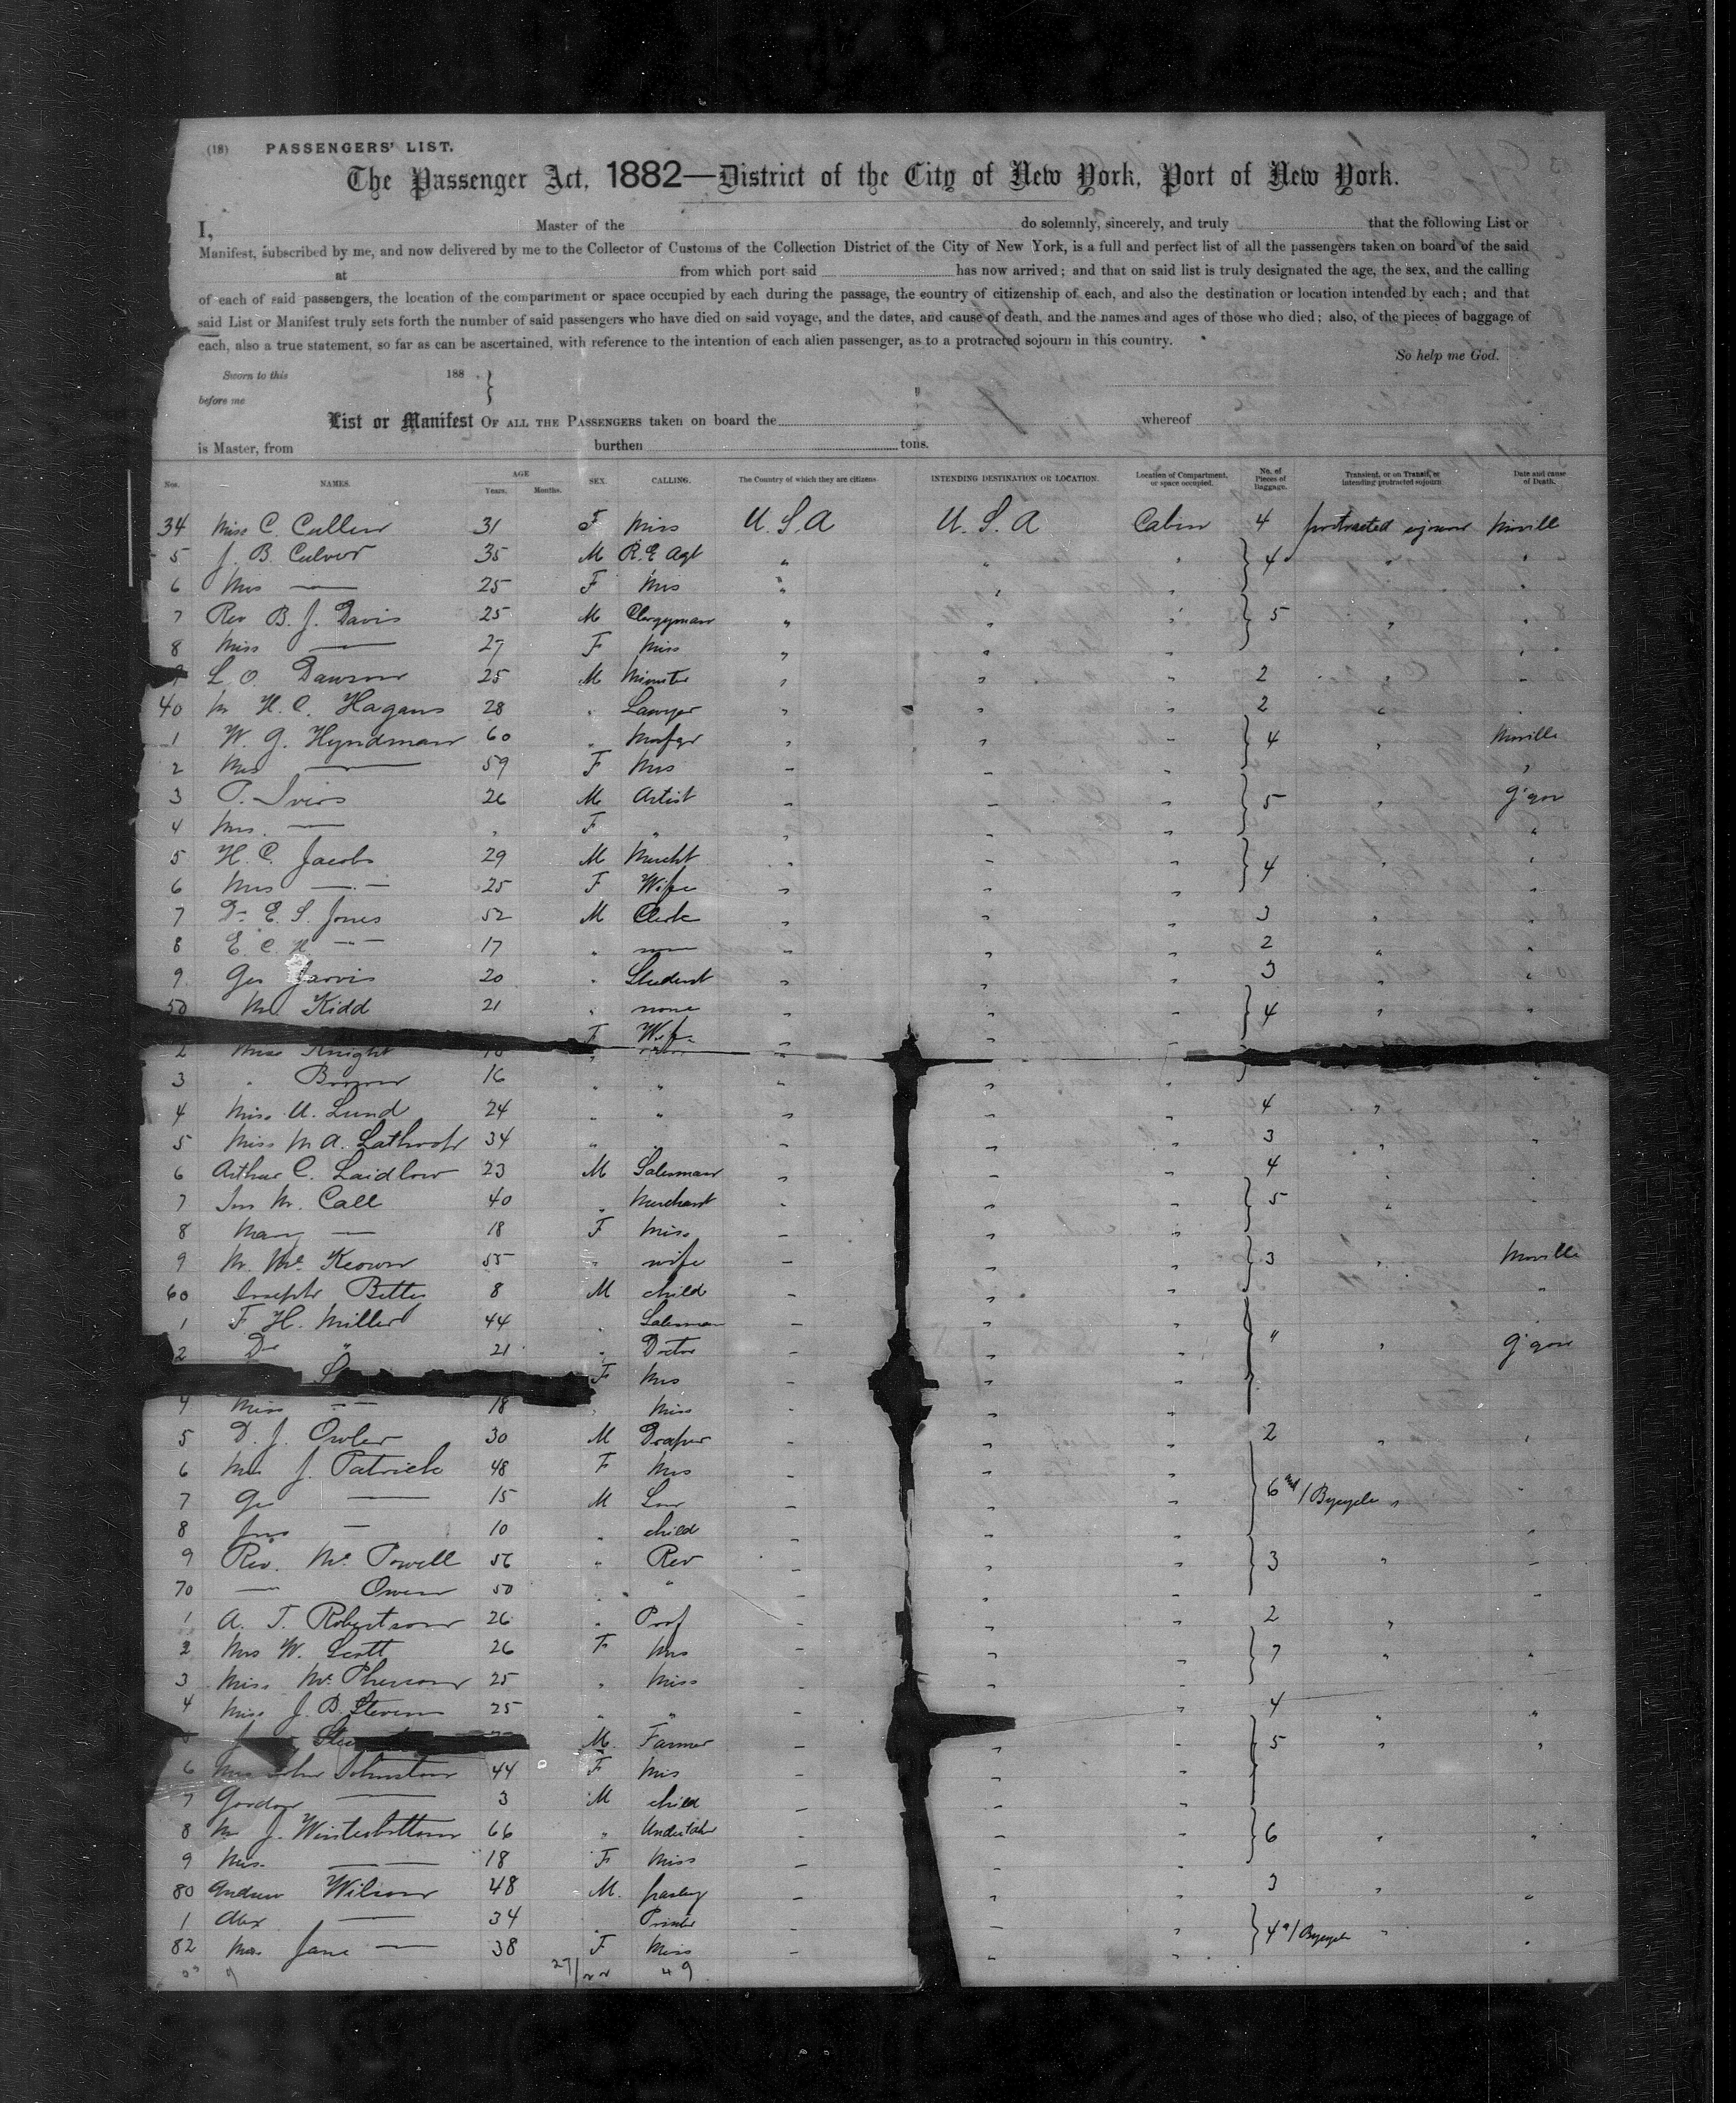 (18) PASSENGERS' LIST.
The Passenger Act, 1882—District of the City of New York, Port of New York.
I, Master of the do solemnly, sincerely, and truly that the following List or
Manifest, subscribed by me, and now delivered by me to the Collector of Customs of the Collection District of the City of New York, is a full and perfect list of all the passengers taken on board of the said
at from which port said has now arrived; and that on said list is truly designated the age, the sex, and the calling
of each of said passengers, the location of the compartment or space occupied by each during the passage, the country of citizenship of each, and also the destination or location intended by each; and that
said List or Manifest truly sets forth the number of said passengers who have died on said voyage, and the dates, and cause of death, and the names and ages of those who died; also, of the pieces of baggage of
each, also a true statement, so far as can be ascertained, with reference to the intention of each alien passenger, as to a protracted sojourn in this country.
So help me God.
Sworn to this 188
before me
List or Manifest OF ALL THE PASSENGERS taken on board the whereof
is Master, from burthen tons.
Nos. NAMES. AGE Years. Months. SEX. CALLING. The Country of which they are citizens. INTENDING DESTINATION OR LOCATION. Location of Compartment, or space occupied. No. of Pieces of Baggage. Transient, or on Transit, or intending protracted sojourn Date and cause of Death.
34 Miss C. Cullen 31 F Miss U.S.A U.S.A Cabin 4 protracted sojourn Moville
5 J. B. Culver 35 M R.E Agt " " " 4 " "
6 Mrs — 25 F Mrs " " "
7 Rev B. J. Davis 25 M Clergyman " " " 5 " "
8 Miss — 27 F Miss " " " "
L. O. Dawson 25 M Minister " " " 2 " "
40 Mr H. C. Hagans 28 " Lawyer " " " 2 " "
1 W. G. Hyndman 60 " Manfgr " " " 4 " Moville
2 Mrs — 59 F Mrs " " " "
3 P. Ivers 26 M Artist " " " 5 " G'gow
4 Mrs. — " F " " " " "
5 H. C. Jacobs 29 M Mercht " " " 4 " "
6 Mrs — 25 F Wife " " " "
7 Dr E. S. Jones 52 M Clerk " " " 3 " "
8 E. C. — 17 " " " " 2 " "
9 Geo Jarvis 20 " Student " " " 3 " "
50 Mr Kidd 21 " none " " " 4 " "
F Wife " " "
2 Miss Knight
3 " Brown 16 " " " " "
4 Miss U. Lund 24 " " " " " 4 "
5 Miss M. A. Lathrop 34 " " " " " 3 " "
6 Arthur C. Laidlow 23 M Salesman " " " 4 " "
7 Jno M. Call 40 " Merchant " " " 5 " "
8 Mary — 18 F Miss " " "
9 M. McKeown 55 " wife " " " 3 " Moville
60 Joseph Bette 8 M child " " " "
1 F. H. Millert 44 " Salesman " " "
2 Dr " 21 " Doctor " " " " " G'gow
F Mrs " " "
4 Miss — 18 " Miss " " "
5 D. J. Owler 30 M Draper " " " 2 " "
6 Mrs J. Patrick 48 F Mrs " " "
7 Geo — 15 M Son " " " 6 and 1 Bycycle " "
8 Jno — 10 " child " " " "
9 Rev. Mc Powell 56 " Rev " " " 3 " "
70 — Owen 50 " " " " " "
1 A. T. Robertson 26 " Prof " " " 2 "
2 Mrs W. Scott 26 F Mrs " " " 7 " "
3 Miss McPherson 25 " Miss " " "
4 Miss J. B. Steven 25 " " " " " 4 " "
M. Farmer " " " 5 " "
6 Mrs John Johnston 44 F Mrs " " "
7 Gordon — 3 M child " " "
8 Mr J. Winterbottom 66 " Undertaker " " " 6 " "
9 Miss — 18 F Miss " " "
80 Andrew Wilson 48 M. " " " 3 " "
1 Alex — 34 " Printer " " "
82 Mrs Jane — 38 F Miss " " " 4 & 1 Bycycle " "
27/22 49